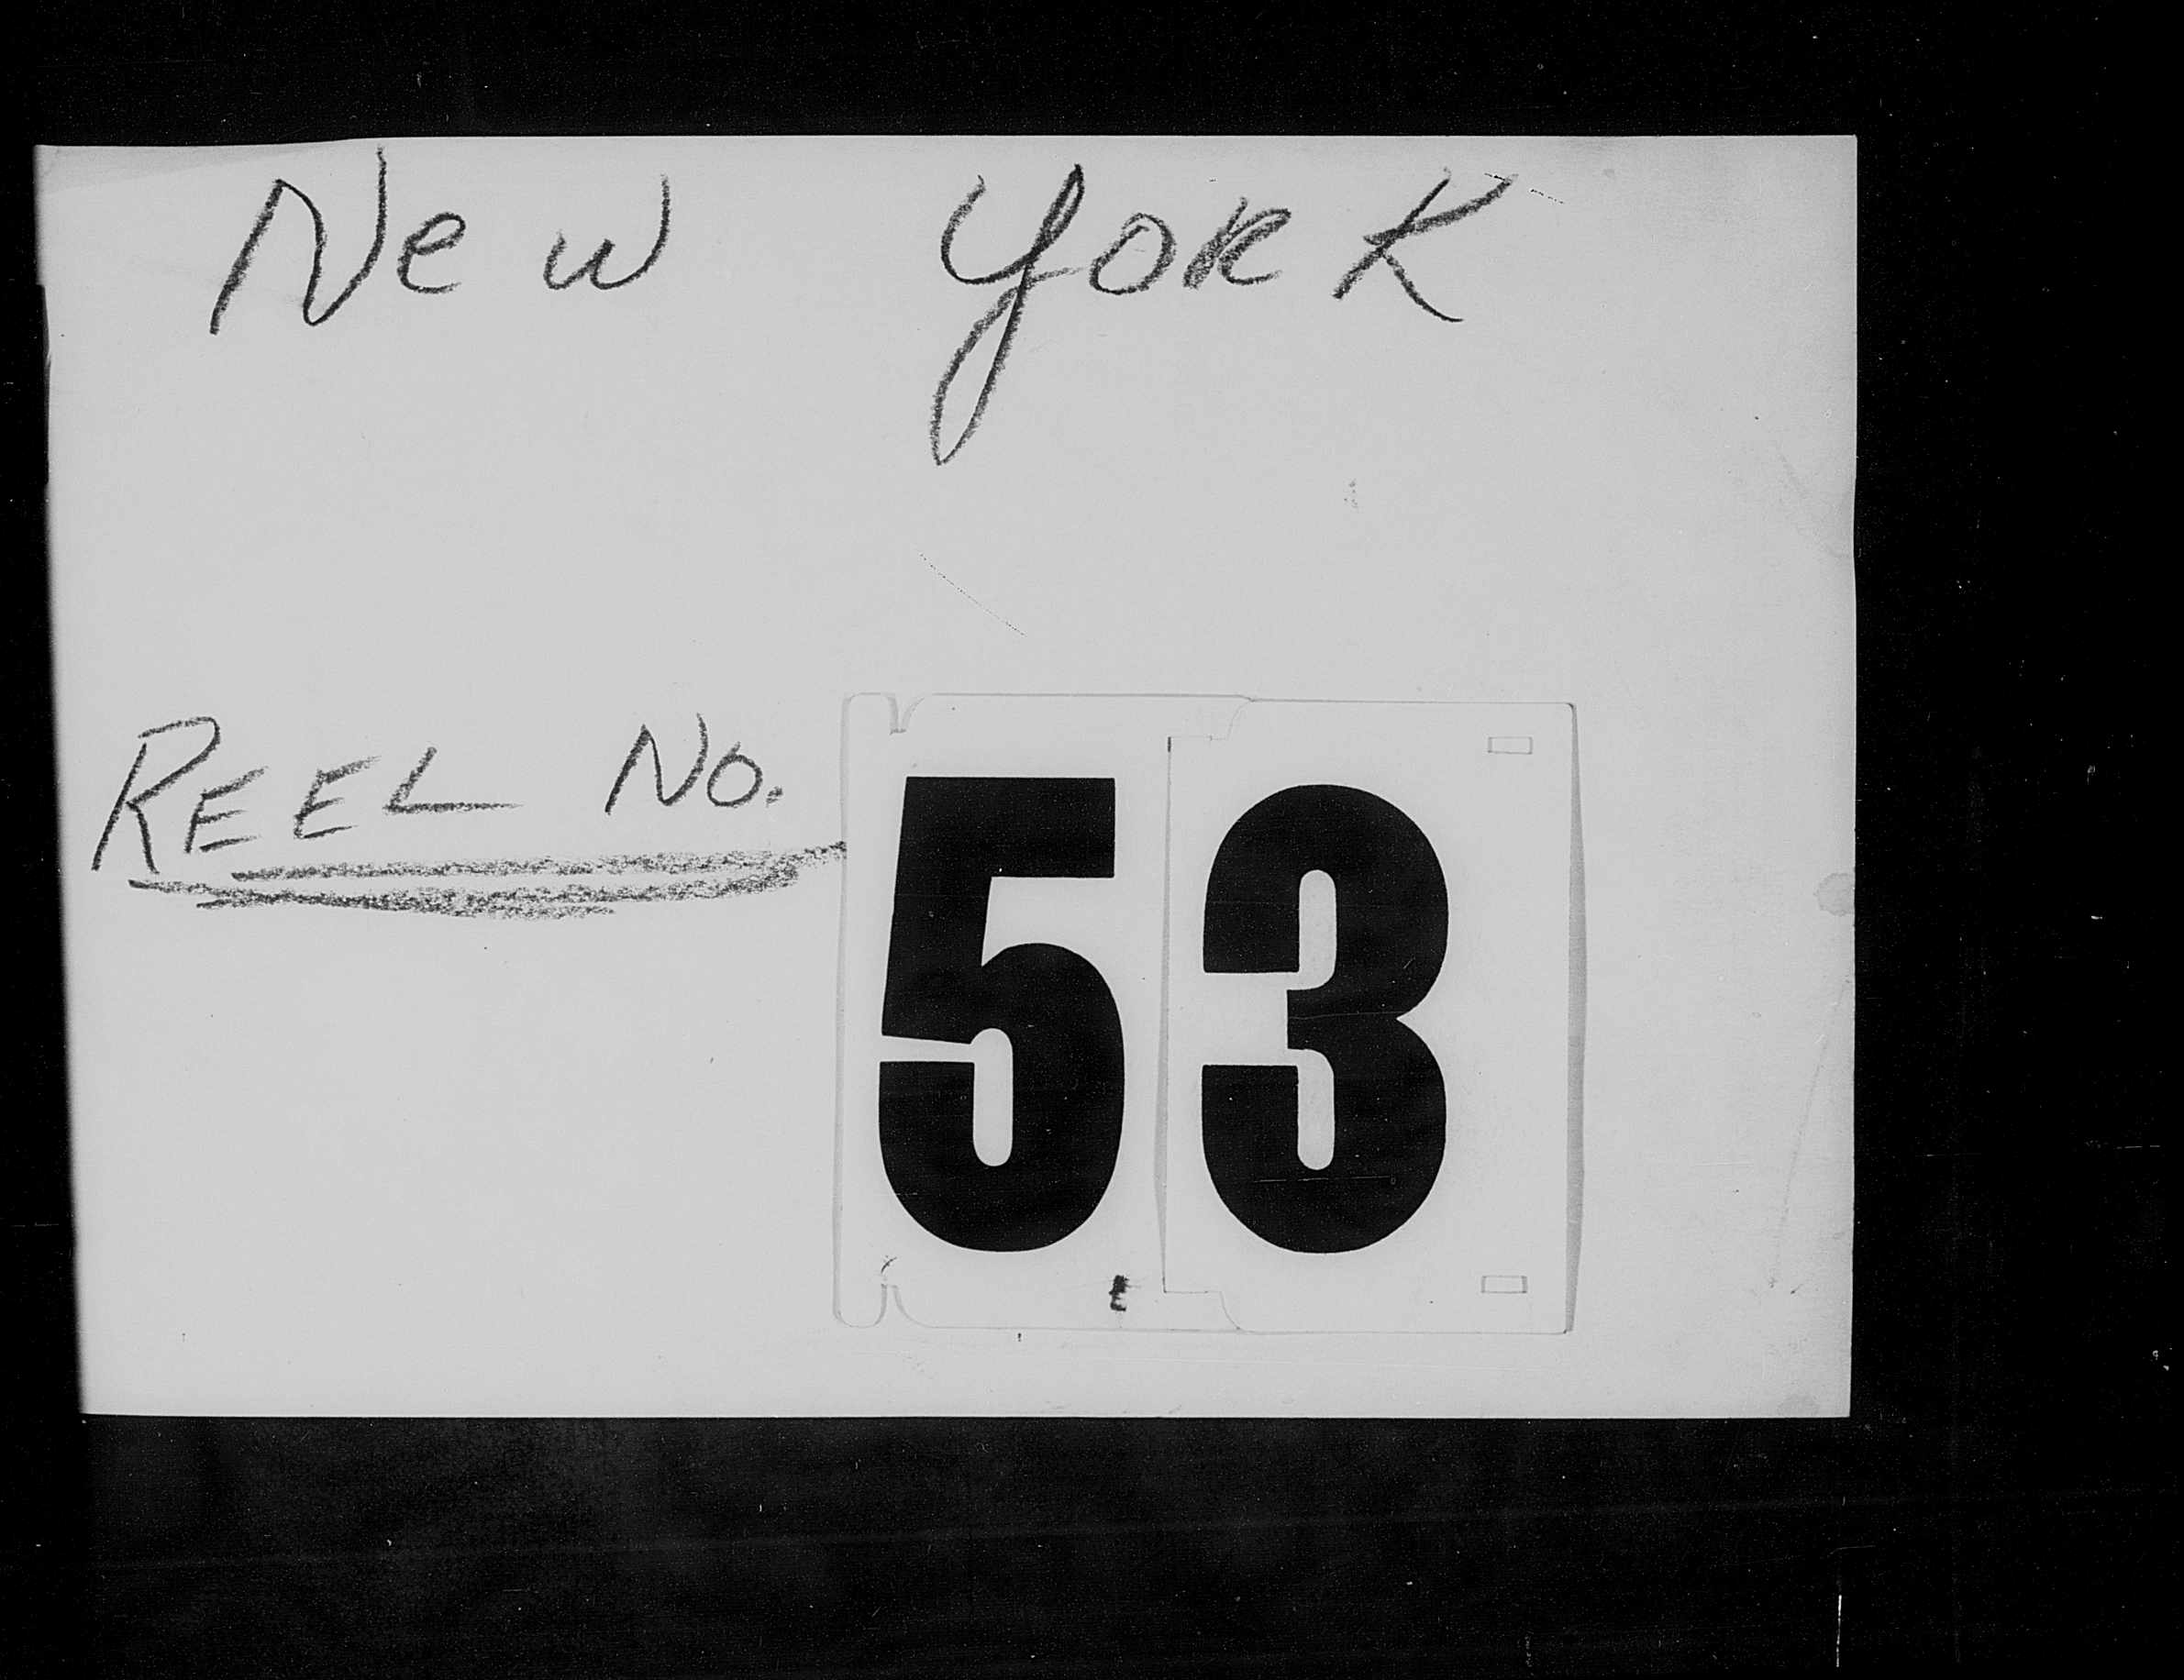 New York
REEL No. 53